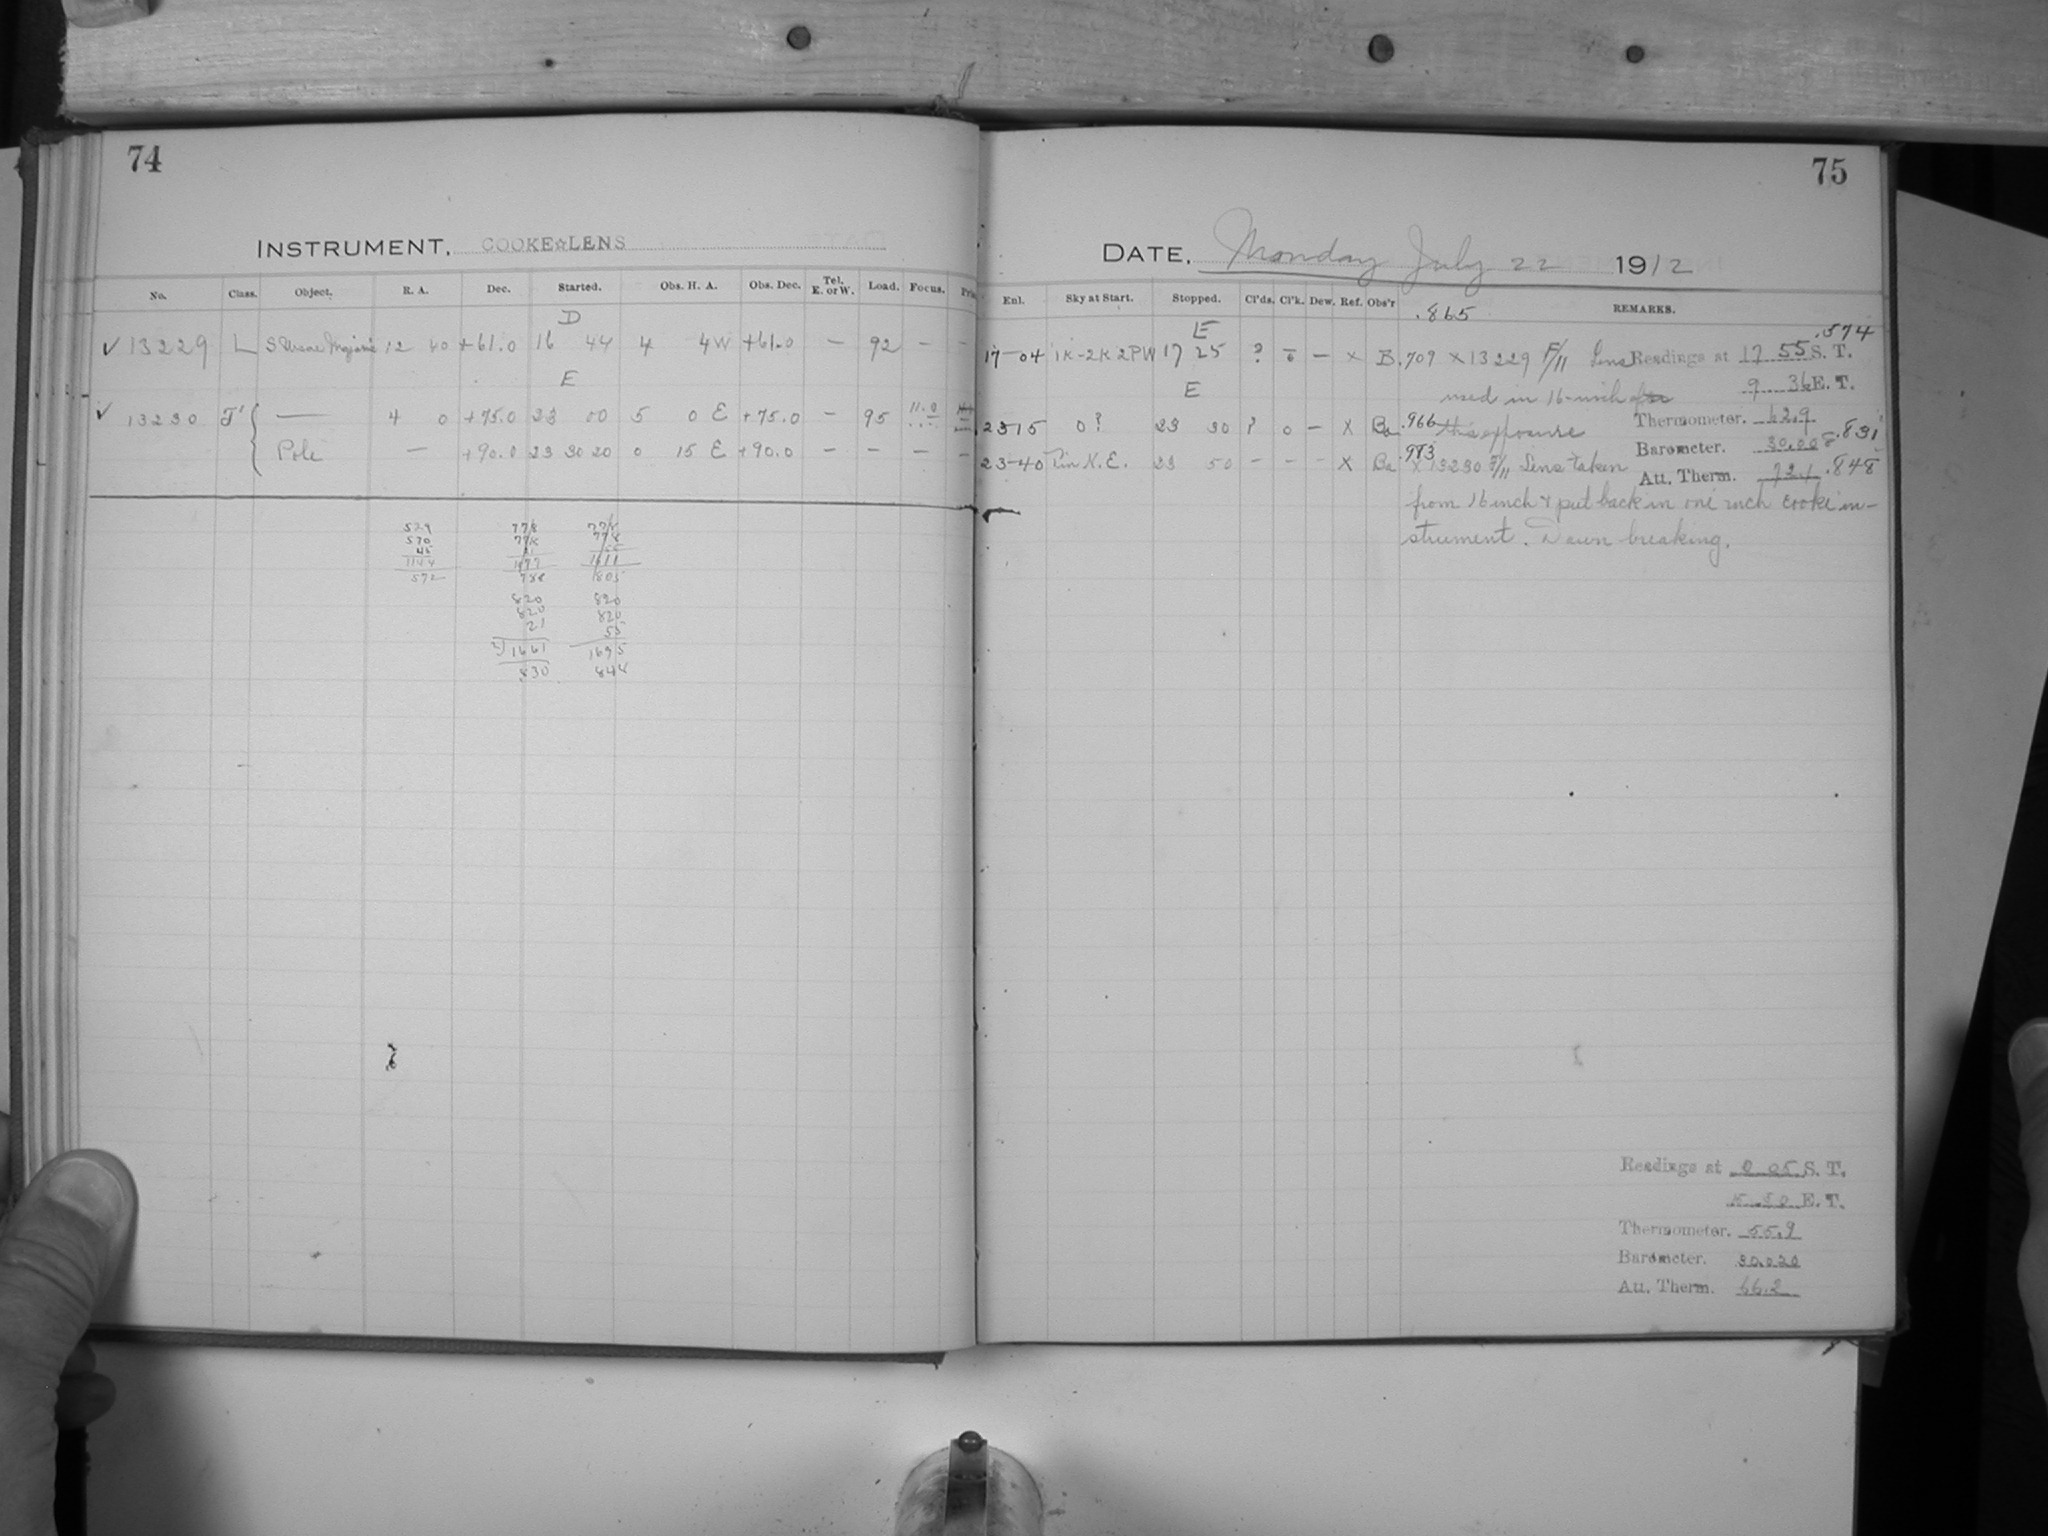 74
INSTRUMENT. COOKE☆LENS
No. Class. Object. R. A. Dec. Started. Obs. H. A. Obs. Dec. Tel. E. or W. Load. Focus.
D
✓ 13229 L S Ursae Majoris 12 40 +61.0 16 44 4 4 W +61.0 — 92 — —
E
✓ 13230 — 4 0 +75.0 23 00 5 0 E +75.0 — 95 11.0
Pole — +90.0 23 30 20 0 15 E +90.0 — — — —
529 778 778
570
45
1144 1577 1611
572 788 805
820 820
820 820
21 55
2) 1661 1695
830 848
75
DATE. Monday July 22 1912
Enl. Sky at Start. Stopped. Cl'ds. Cl'k. Dew. Ref. Obs'r REMARKS.
.865
E .574
17-04 1K-2K 2PW 17 25 ? — x B .709 x 13229 F/11 Lens Readings at 17 55 S. T.
used in 16-inch 9 36 E. T.
E
23 15 0? 23 30 ? 0 — x Ba .966 this exposure Thermometer. 62.9
Barometer. 30.008 .831
23-40 P in N.E. 23 50 — — — x Ba .983 x 13230 F/11 Lens taken Att. Therm. 72.1 .848
from 16 inch & put back in one inch Cooke in-
strument. Dawn breaking.
Readings at 0 05 S. T.
E. T.
Thermometer. 55.9
Barometer. 30.020
Att. Therm. 66.2